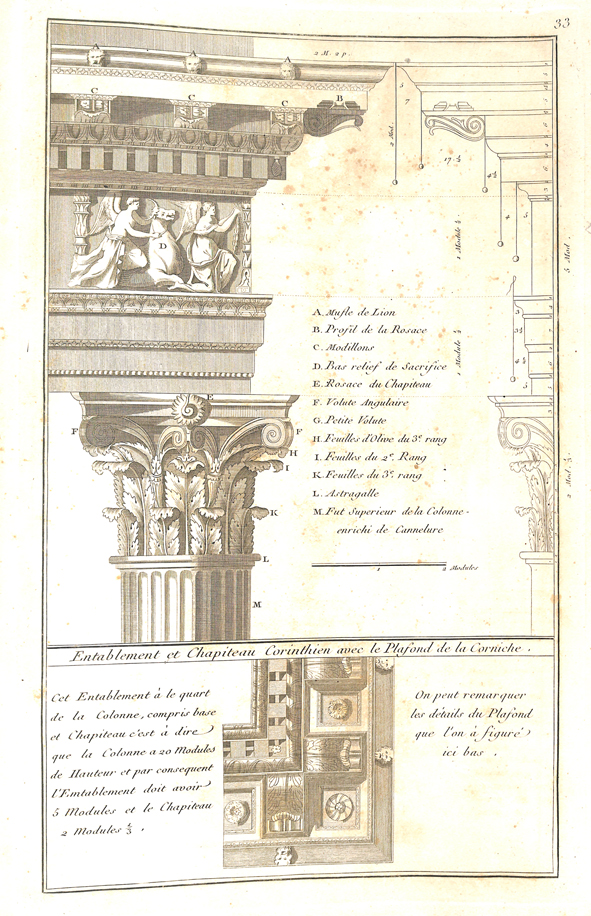 33
2 M. 2 p.
A
A
A
C
C
C
B
5
7
2 Mod.
17 ½
4 ½
4
D
1 Module ½
5 Mod.
A. Mufle de Lion
B. Profil de la Rosace
C. Modillons
D. Bas relief de Sacrifice
E. Rosace du Chapiteau
F. Volute Angulaire
G. Petite Volute
H. Feuilles d'Olive du 3.e rang
I. Feuilles du 2.e Rang
K. Feuilles du 3.e rang
L. Astragalle
M. Fut Superieur de la Colonne-
enrichi de Cannelure
1 Module ½
E
F
F
H
I
K
L
M
2 Mod. ⅓.
1
2 Modules
Entablement et Chapiteau Corinthien avec le Plafond de la Corniche.
Cet Entablement à le quart
de la Colonne, compris base
et Chapiteau c'est à dire
que la Colonne a 20 Modules
de Hauteur et par consequent
l'Emtablement doit avoir
5 Modules et le Chapiteau
2 Modules ⅓.
On peut remarquer
les détails du Plafond
que l'on à figuré
ici bas.